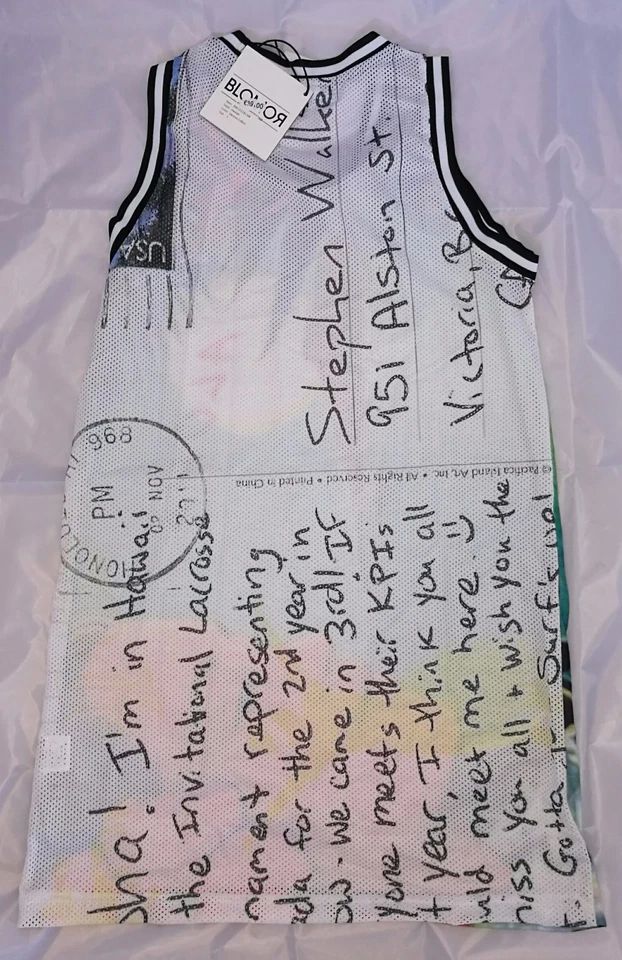 BLOVOR
€9.00
USA
HONOLU
968
PM
09 NOV
Stephen Walke
951 Alston St.
Victoria, B
CA
© Pacifica Island Art, Inc. • All Rights Reserved • Printed in China
oha! I'm in Hawaii
the Invitational Lacrosse
nament representing
ada for the 2nd year in
ow. We came in 3rd! IF
yone meets their KPIs
t year, I think you all
uld meet me here. :)
miss you all + wish you the
t. Gotta Surf's up!